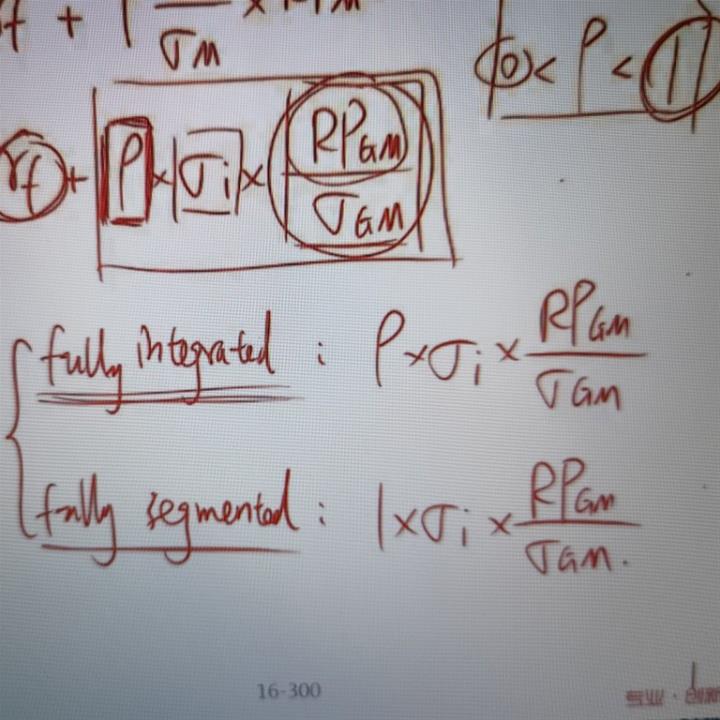 + σM ×
0 < ρ < 1
rf + ρ × σi × RPGM / σGM
fully integrated : ρ × σi × RPGM / σGM
fully segmented : 1 × σi × RPGM / σGM.
16-300
专业 · 创新